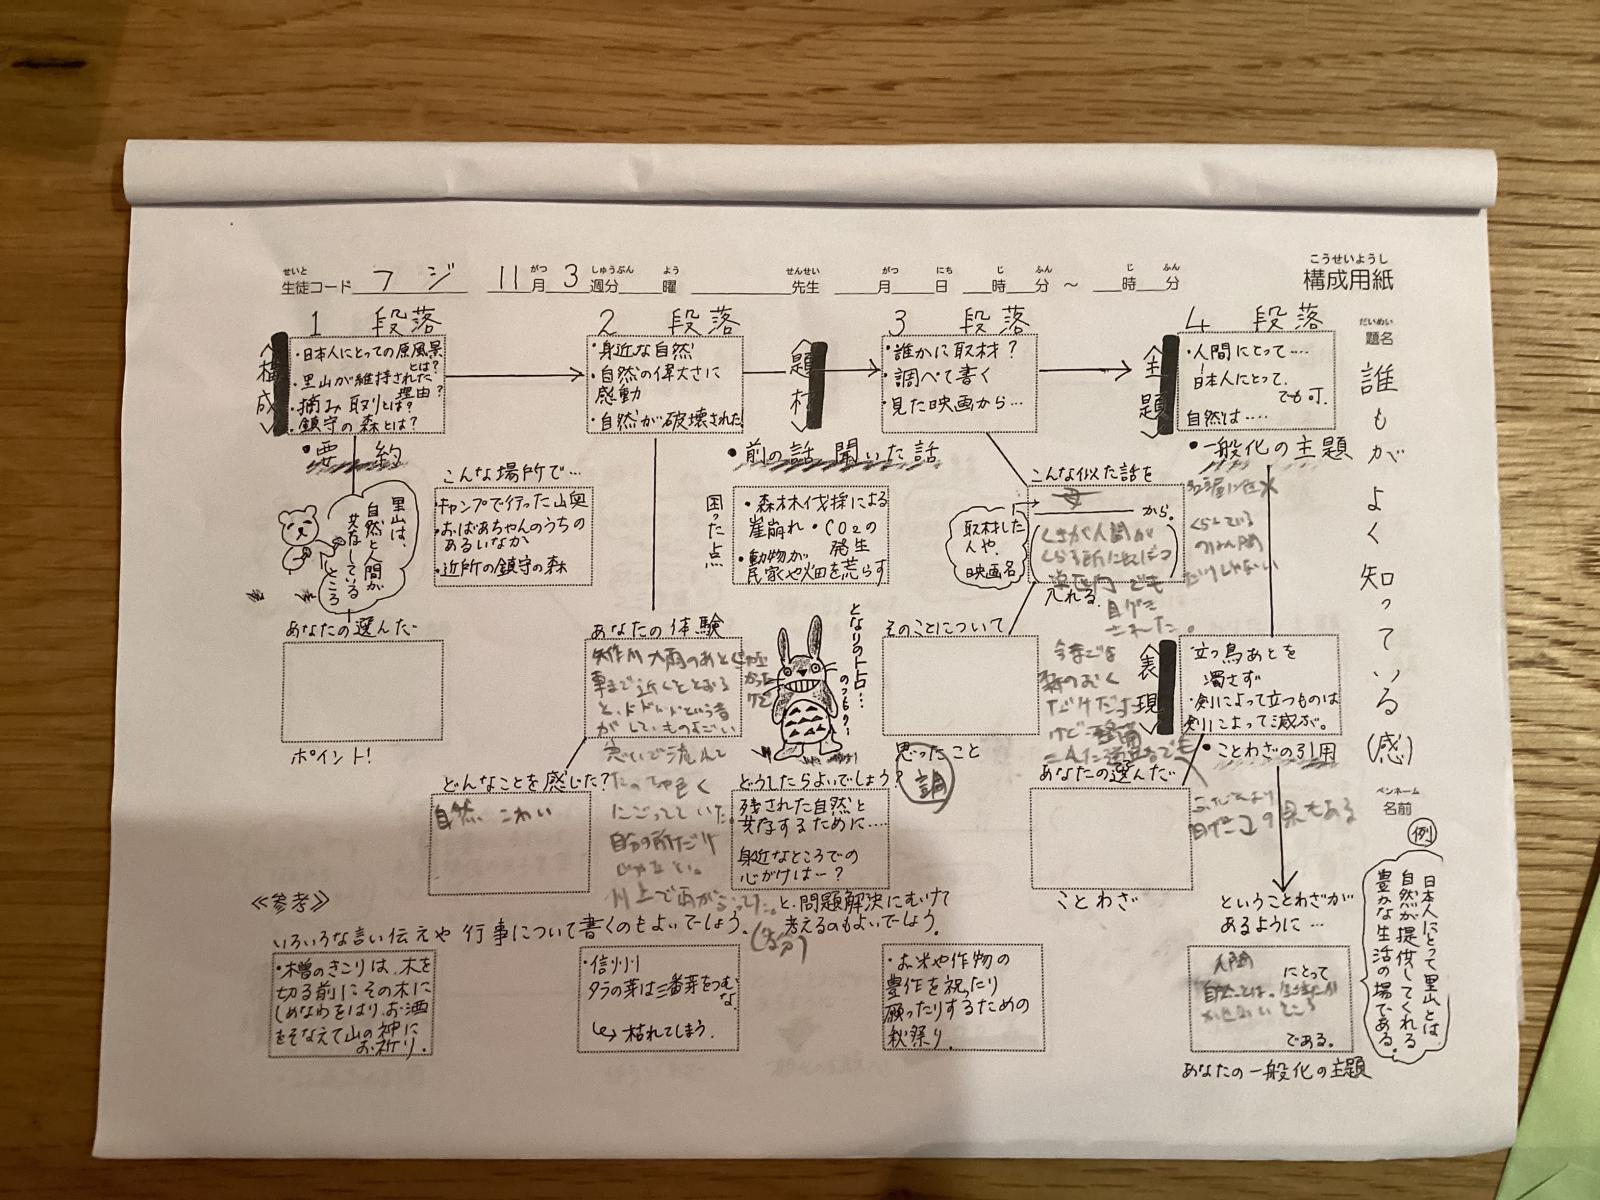 こうせいようし
構成用紙
せいと
生徒コード フジ 11月 3週分 曜 先生 月 日 時 分 〜 時 分
がつ しゅうぶん よう せんせい がつ にち じ ふん じ ふん
だいめい
題名
誰もがよく知っている(感)
ペンネーム
名前
1 段落
〈構成〉
・日本人にとっての原風景とは?
・里山が維持された理由?
・摘み取りとは?
・鎮守の森とは?
・要約
里山は、
自然と人間が
共存している
ところ
あなたの選んだ
ポイント!
2 段落
・身近な自然
・自然の偉大さに
感動
・自然が破壊された
こんな場所で…
・キャンプで行った山奥
・おばあちゃんのうちの
あるいなか
・近所の鎮守の森
あなたの体験
矢作川 大雨のあと
車で近くをとおる
と、ドドドドという音
がしていものすごい
急いで流れて
にごってていた
自分の所だけ
じゃない。
川上で雨が
どんなことを感じた?
自然 こわい
〈題材〉
3 段落
・誰かに取材?
・調べて書く
・見た映画から…
・前の話 聞いた話
困った点
・森林伐採による
崖崩れ・CO2の
発生
・動物が
民家や畑を荒らす
こんな似た話を
母
から。
取材した
人や、
映画名
入れる。
となりのトトロ…
のつもり?
そのことについて
思ったこと
調
どうしたらよいでしょう?
残された自然と
共存するために….
身近なところでの
心がけは…?
と、問題解決にむけて
考えるのもよいでしょう。
〈主題〉
4 段落
・人間にとって….
日本人にとって.
でも可.
自然は….
・一般化の主題
〈表現〉
・立つ鳥あとを
濁さず
・剣によって立つものは
剣によって滅が。
・ことわざの引用
あなたの選んだ
ことわざ
ということわざが
あるように…
人間
にとって
自然とは、
である。
あなたの一般化の主題
例
日本人にとって里山とは、
自然が提供してくれる
豊かな生活の場である。
≪参考≫
いろいろな言い伝えや 行事について書くのもよいでしょう。
・木曽のきこりは、木を
切る前にその木に
しめなわをはり、お酒
をそなえて山の神に
お祈り。
・信州
タラの芽は三番芽をつむな
↳ 枯れてしまう.
・お米や作物の
豊作を祝ったり
願ったりするための
秋祭り.